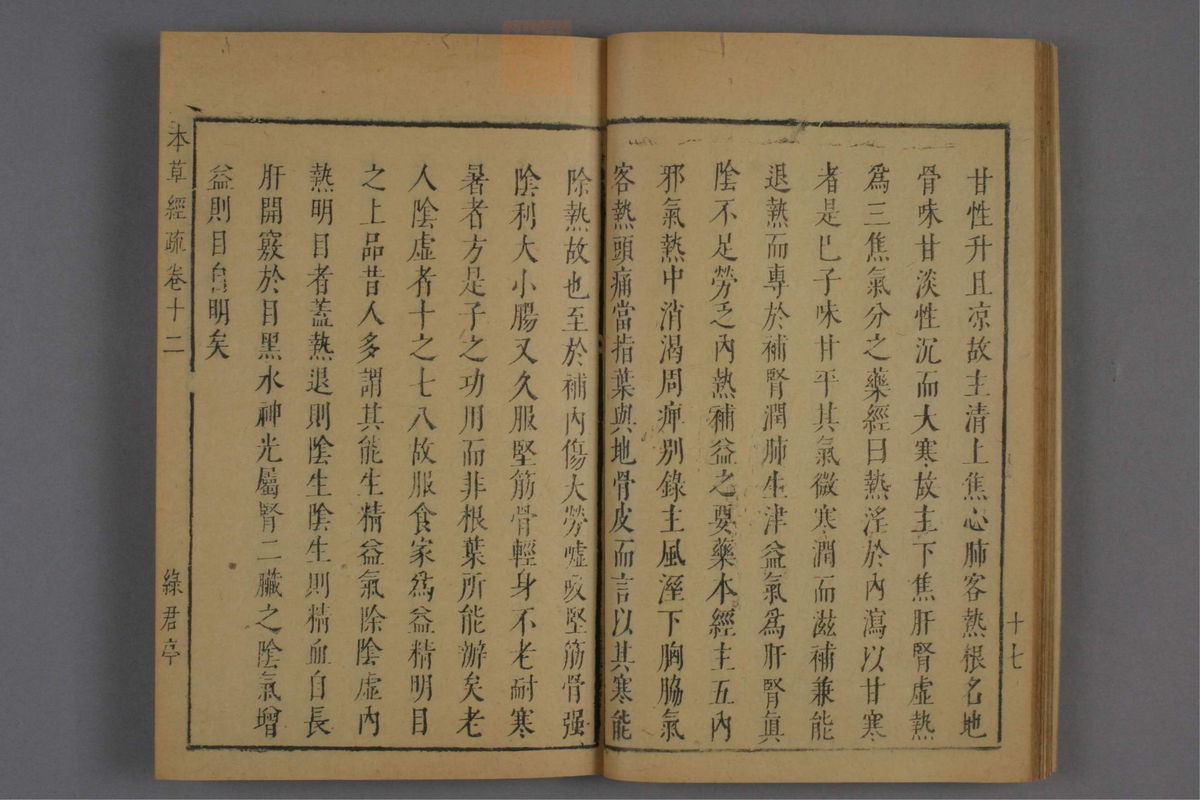 十七
甘性升且凉故主清上焦心肺客熱根名地
骨味甘淡性沉而大寒故主下焦肝腎虚熱
爲三焦氣分之藥經曰熱淫於內瀉以甘寒
者是巳子味甘平其氣微寒潤而滋補兼能
退熱而專於補腎潤肺生津益氣爲肝腎眞
陰不足勞乏內熱補益之要藥本經主五內
邪氣熱中消渴周痺別錄主風溼下胸脇氣
客熱頭痛當指葉與地骨皮而言以其寒能
除熱故也至於補內傷大勞噓吸堅筋骨强
陰利大小腸又久服堅筋骨輕身不老耐寒
暑者方是子之功用而非根葉所能辦矣老
人陰虚者十之七八故服食家爲益精明目
之上品昔人多謂其能生精益氣除陰虚內
熱明目者蓋熱退則陰生陰生則精血自長
肝開竅於目黑水神光屬腎二臟之陰氣增
益則目自明矣
本草經疏卷十二
綠君亭